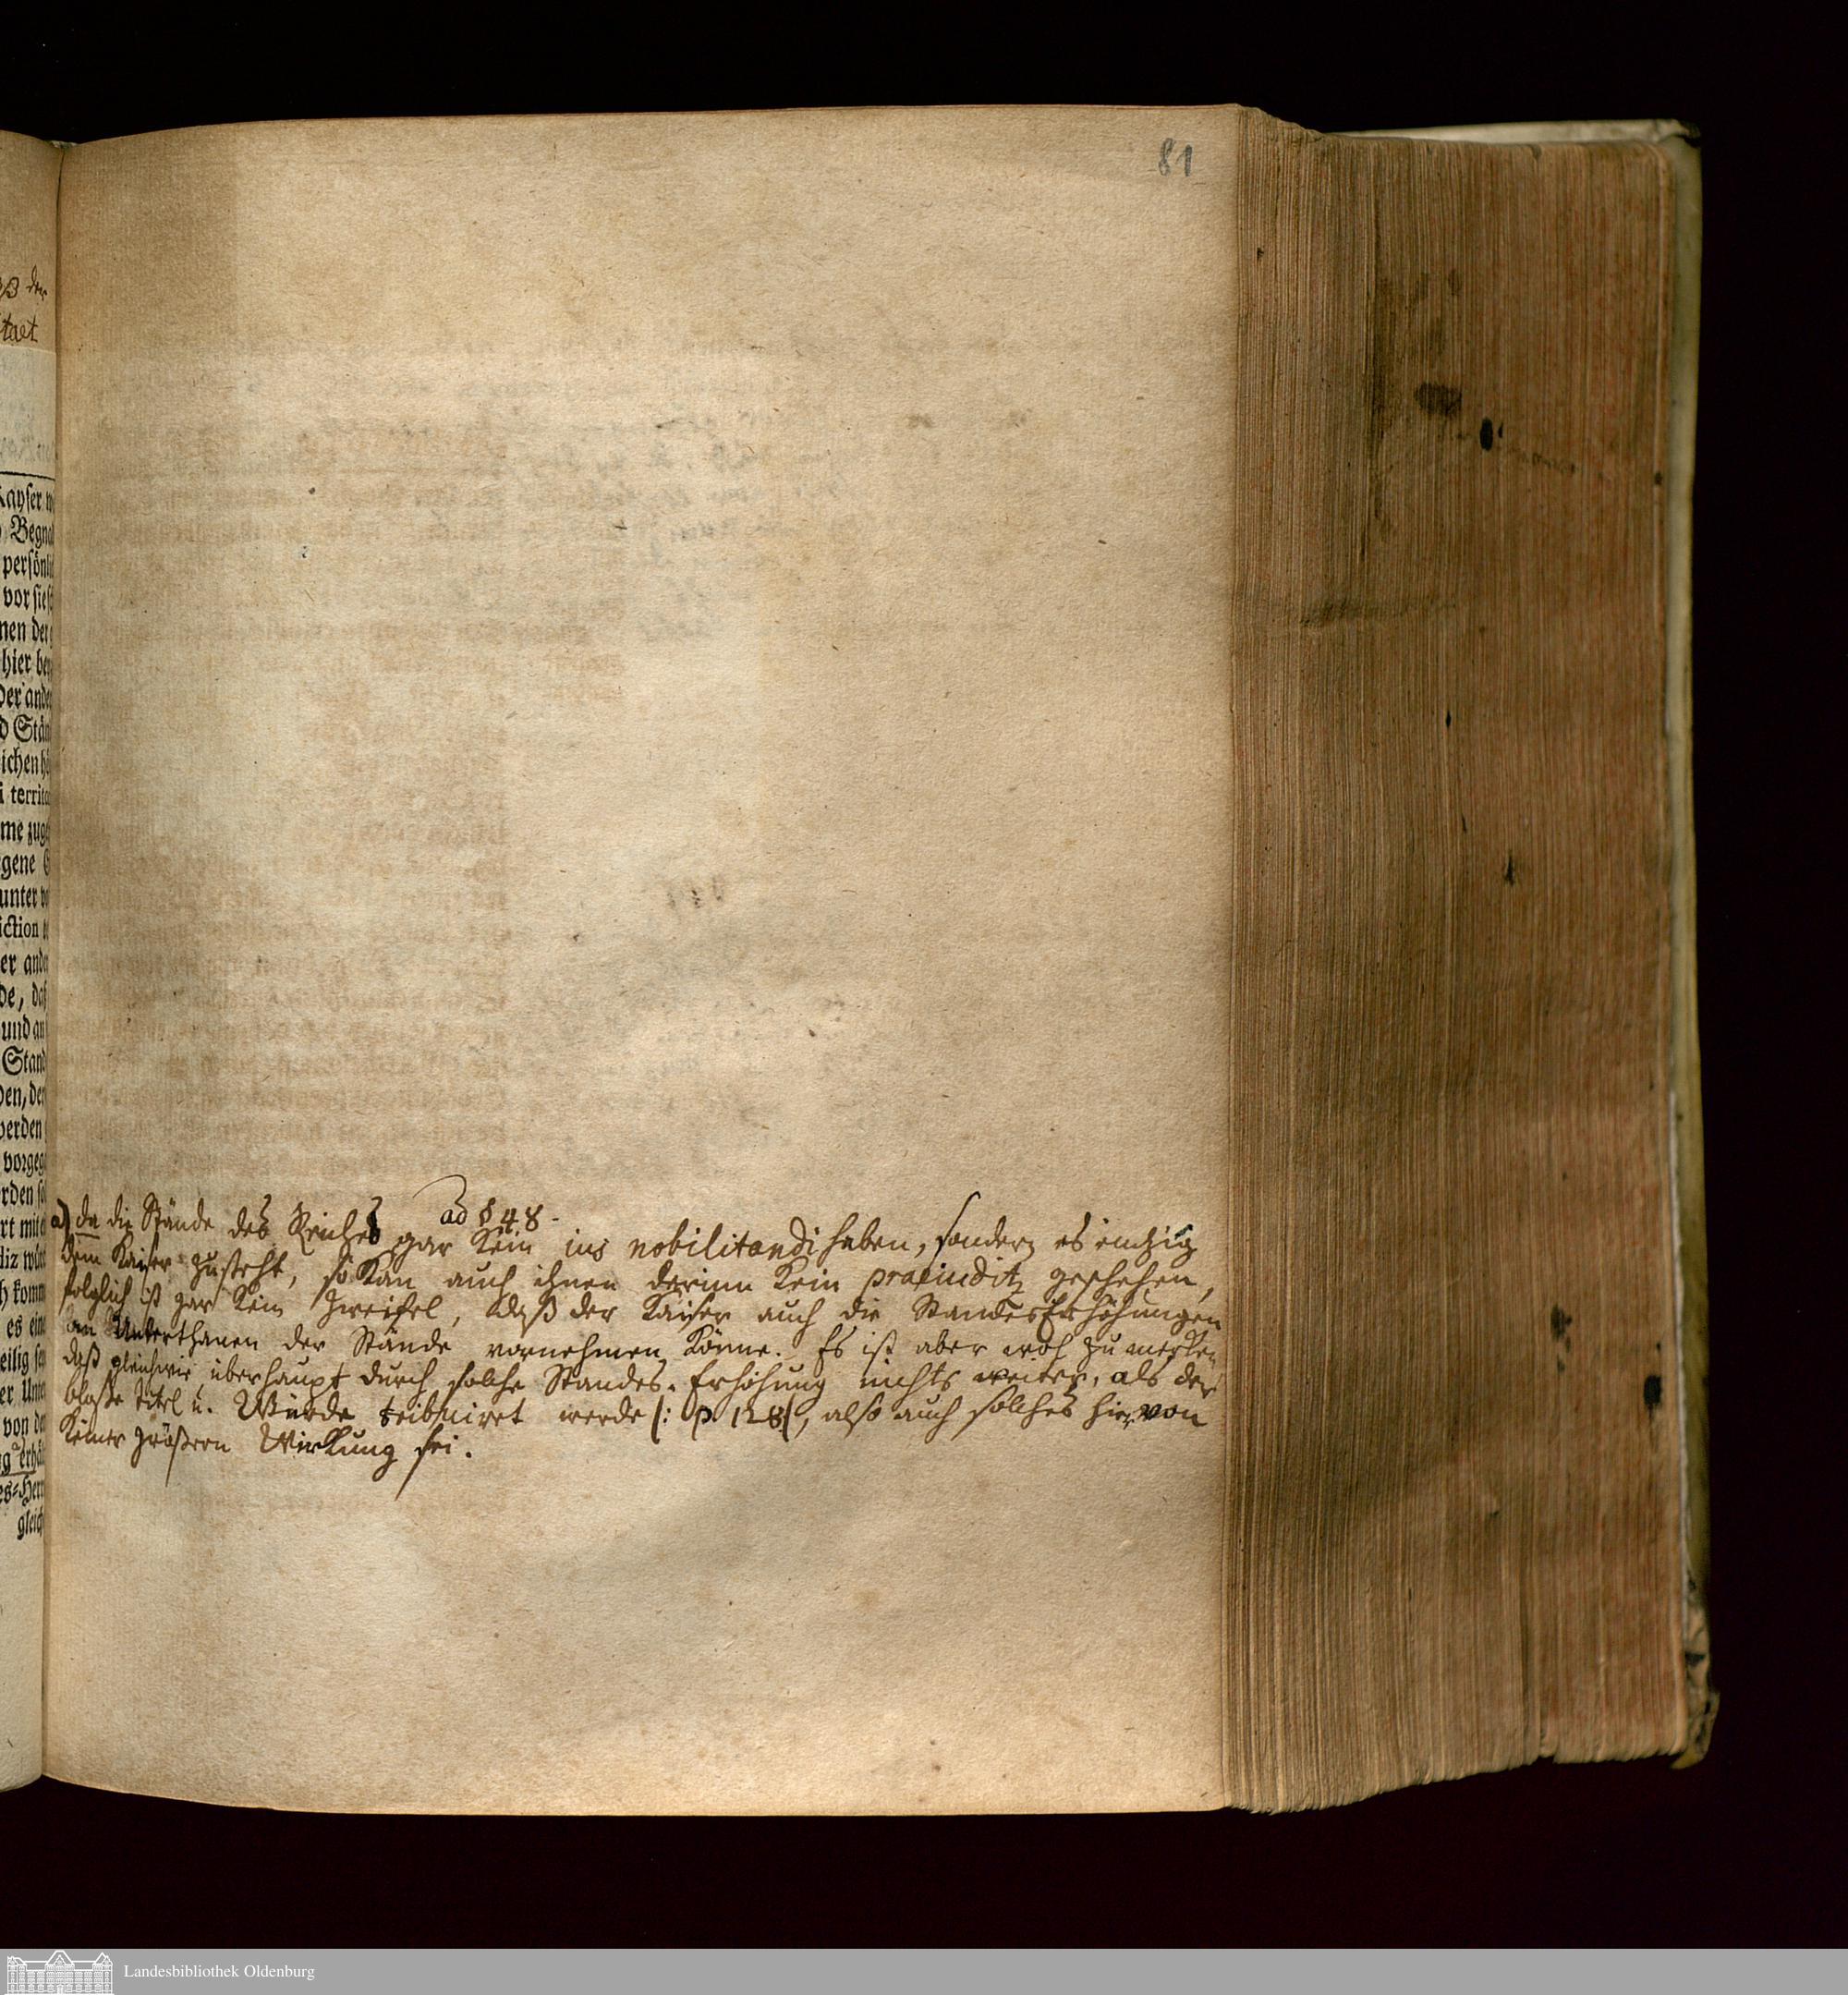 81
ß der
taet
Kayser
Begna
persönli
vor sie
nen der
hier be
der ande
d Stän
ichen
territo
me zug
gene
unter
iction
er ande
de, daß
und an
Stand
den, der
werden
vorgeg
rden so
rt mit
diz wür
komm
es ein
eilig se
er Unter
von de
g erhä
es-Herr
gleich
ad § 48.
a) da die Stände des Reiches gar kein ius nobilitandi haben, sondern es eintzig
dem Kaiser zusteht, so kan auch ihnen darinn kein praeiuditz geschehen,
folglich ist gar kein Zweifel, daß der Kaiser auch die StandesErhöhungen
an Unterthanen der Stände vornehmen könne. Es ist aber wohl zu merken
daß gleichwie überhaupt durch solche Standes-Erhöhung nichts weiter, als der
bloße Titel u. Würde tribuiret werde (: p. 128), also auch solches hiervon
keiner größern Wirkung sei.
Landesbibliothek Oldenburg